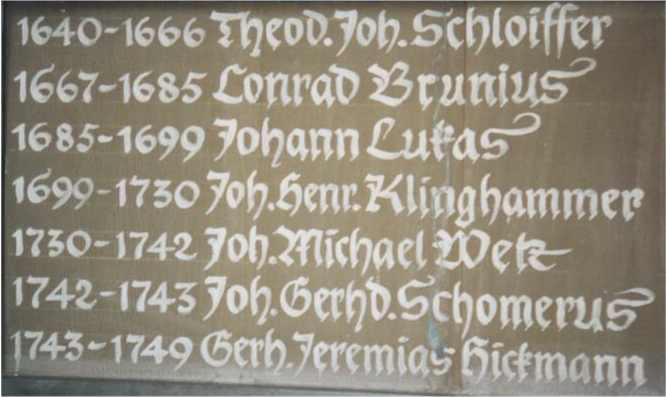 1640-1666 Theod. Joh. Schloiffer
1667-1685 Conrad Brunius
1685-1699 Johann Lukas
1699-1730 Joh. Henr. Klinghammer
1730-1742 Joh. Michael
1742-1743 Joh. Gerhd. Schomerus
1743-1749 Gerh. Jeremias Hickmann